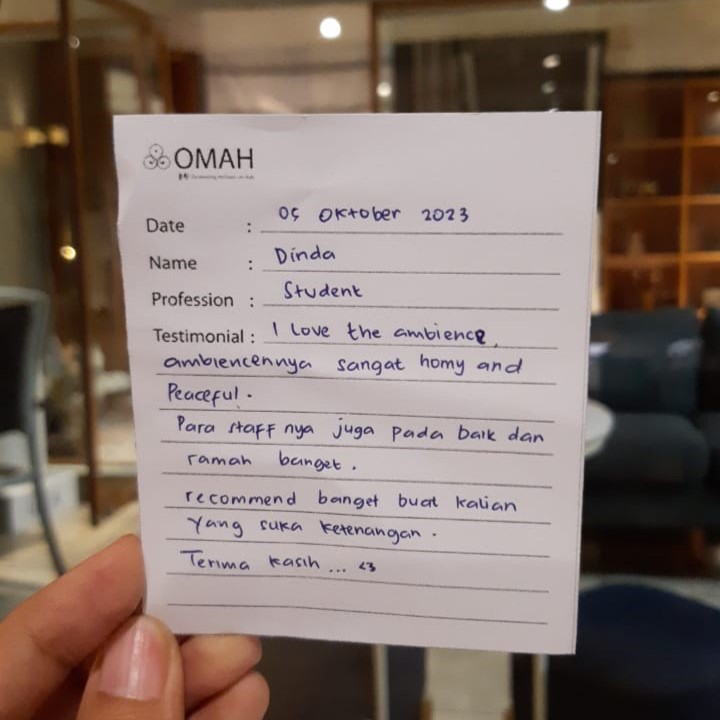 OMAH
Date : 05 Oktober 2023
Name : Dinda
Profession : Student
Testimonial : I Love the ambience,
ambiencennya sangat homy and
Peaceful.
Para staff nya juga pada baik dan
ramah banget.
recommend banget buat kalian
Yang suka ketenangan.
Terima kasih ... <3